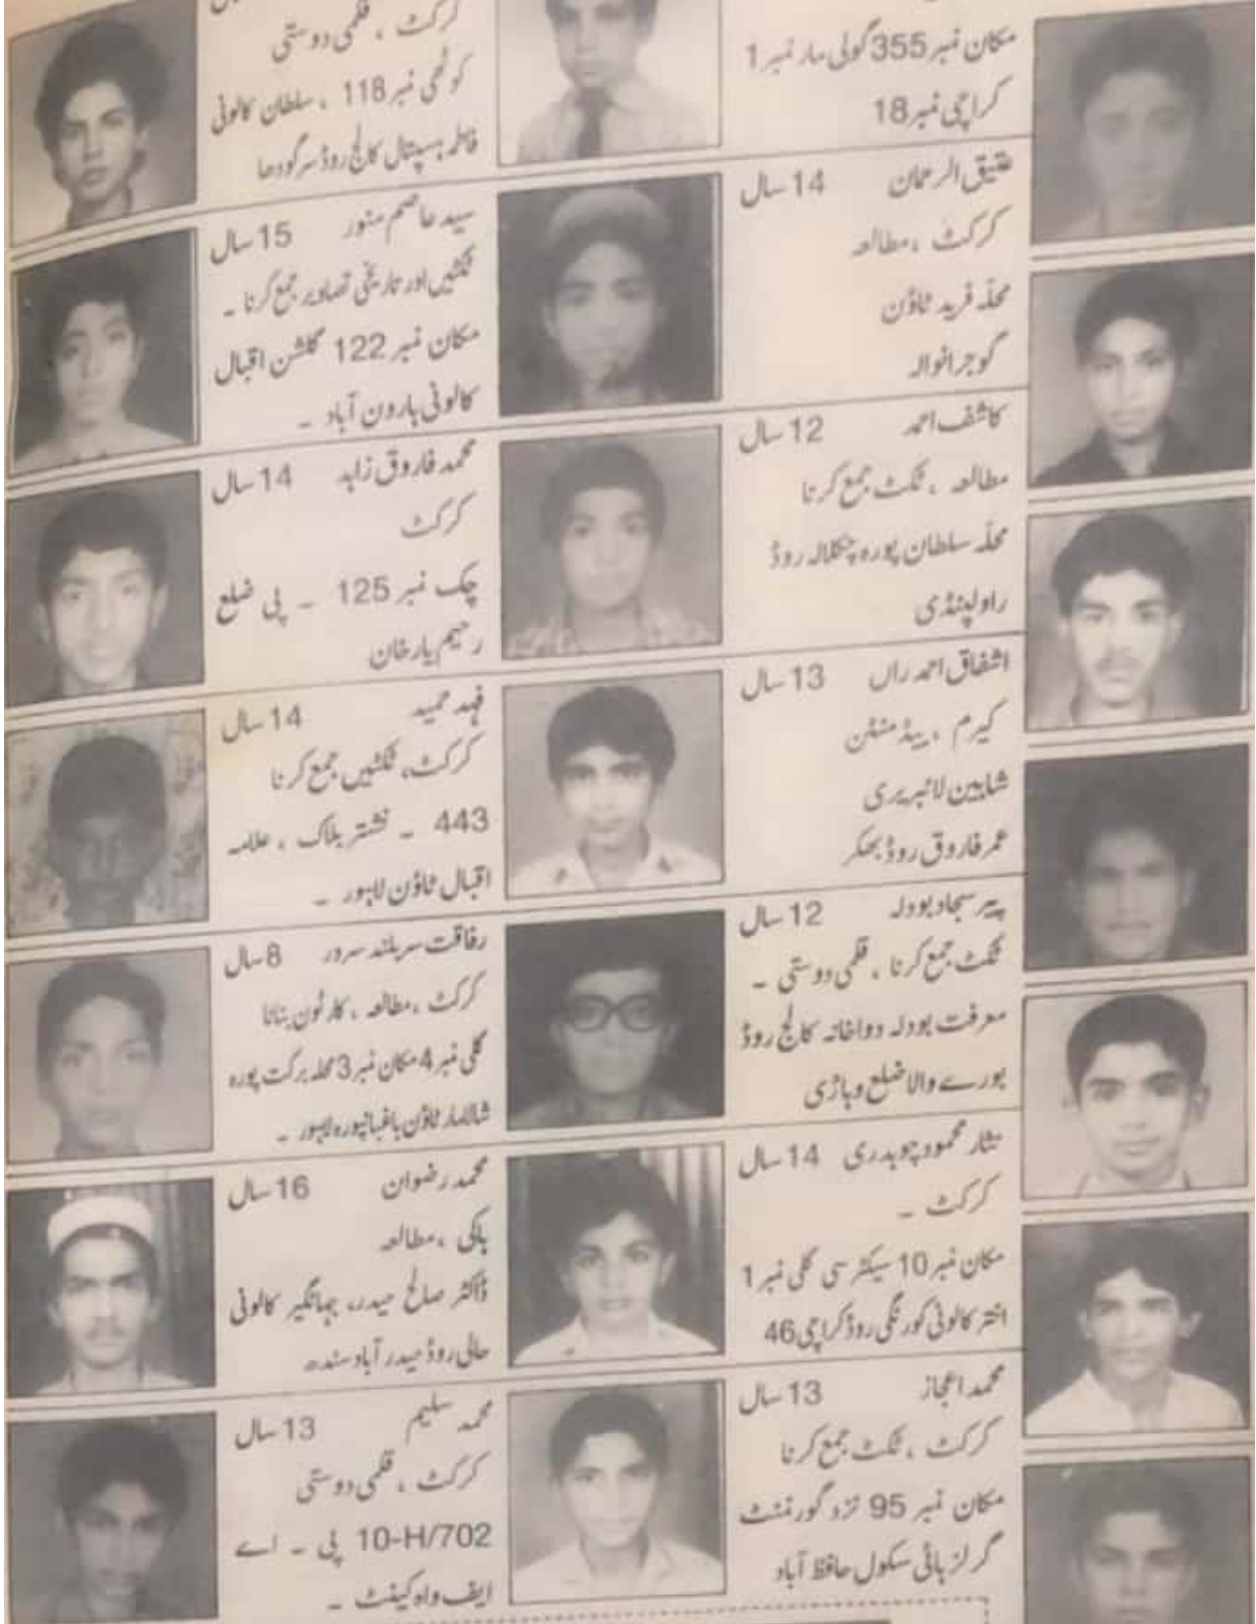 مکان نمبر 355 گولی مار نمبر 1
کراچی نمبر 18
عتیق الرحمان 14 سال
کرکٹ ، مطالعہ
محلّہ فرید ٹاؤن
گوجرانوالہ
کاشف احمد 12 سال
مطالعہ ، ٹکٹ جمع کرنا
محلّہ سلطان پورہ چکلالہ روڈ
راولپنڈی
اشفاق احمد راں 13 سال
کیرم ، بیڈ منٹن
شاہین لائبریری
عمر فاروق روڈ بھکر
پیر سجاد بودلہ 12 سال
ٹکٹ جمع کرنا ، قلمی دوستی ۔
معرفت بودلہ دواخانہ کالج روڈ
بورے والا ضلع وہاڑی
نثار محمود چوہدری 14 سال
کرکٹ ۔
مکان نمبر 10 سیکٹر سی گلی نمبر 1
اختر کالونی کورنگی روڈ کراچی 46
محمد اعجاز 13 سال
کرکٹ ، ٹکٹ جمع کرنا
مکان نمبر 95 نزد گورنمنٹ
گرلز ہائی سکول حافظ آباد
کرکٹ ، قلمی دوستی
کوٹھی نمبر 118 ، سلطان کالونی
فاطمہ ہسپتال کالج روڈ سرگودھا
سید عاصم منور 15 سال
ٹکٹیں اور تاریخی تصاویر جمع کرنا ۔
مکان نمبر 122 گلشن اقبال
کالونی ہارون آباد ۔
محمد فاروق زاہد 14 سال
کرکٹ
چک نمبر 125 ۔ پی ضلع
رحیم یار خان
فہد حمید 14 سال
کرکٹ، ٹکٹیں جمع کرنا
443 ۔ نشتر بلاک ، علامہ
اقبال ٹاؤن لاہور ۔
رفاقت سربلند سرور 8 سال
کرکٹ ، مطالعہ ، کارٹون بنانا
گلی نمبر 4 مکان نمبر 3 محلہ برکت پورہ
شالامار ٹاؤن باغبانپورہ لاہور ۔
محمد رضوان 16 سال
ہاکی ، مطالعہ
ڈاکٹر صالح حیدر، جہانگیر کالونی
حالی روڈ حیدر آباد سندھ
محمد سلیم 13 سال
کرکٹ ، قلمی دوستی
10-H/702 پی ۔ اے
ایف واہ کینٹ ۔